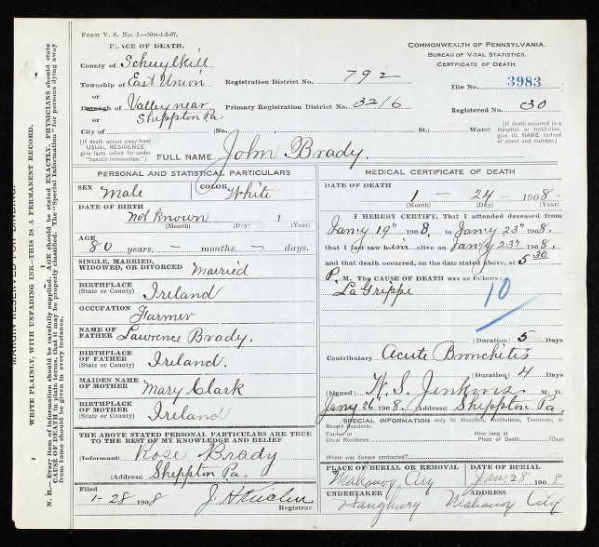 FORM V. S. No. 5—50M-1-5-07.
PLACE OF DEATH.
County of Schuylkill
Township of East Union
or
Borough of Valley near
or Sheppton Pa.
City of (No. St.; Ward;
COMMONWEALTH OF PENNSYLVANIA.
BUREAU OF VITAL STATISTICS.
CERTIFICATE OF DEATH.
Registration District No. 792 File No. 3983
Primary Registration District No. 3216 Registered No. 30
[If death occurs away from USUAL RESIDENCE give facts called for under "Special Information."]
[If death occurred in a Hospital or Institution, give its NAME instead of street and number.]
FULL NAME John Brady.
PERSONAL AND STATISTICAL PARTICULARS
SEX Male COLOR White
DATE OF BIRTH
Not Known 1
(Month) (Day) (Year)
AGE
80 years, — months, — days.
SINGLE, MARRIED,
WIDOWED, OR DIVORCED Married
BIRTHPLACE
(State or County) Ireland
OCCUPATION
Farmer
NAME OF
FATHER Lawrence Brady.
BIRTHPLACE
OF FATHER
(State or County) Ireland.
MAIDEN NAME
OF MOTHER Mary Clark
BIRTHPLACE
OF MOTHER
(State or County) Ireland
THE ABOVE STATED PERSONAL PARTICULARS ARE TRUE
TO THE BEST OF MY KNOWLEDGE AND BELIEF
(Informant) Rose Brady
(Address) Sheppton Pa.
Filed
1-28 1908
Registrar
MEDICAL CERTIFICATE OF DEATH
DATE OF DEATH
1 — 24 — 1908
(Month) (Day) (Year)
I HEREBY CERTIFY, That I attended deceased from
Jany 19th 1908, to Jany 23rd 1908.
that I last saw him alive on Jany 23rd 1908.
and that death occurred, on the date stated above, at 5 30
P. M. The CAUSE OF DEATH was as follows:
La Grippe
10
(Duration) 5 Days
Contributory Acute Bronchitis
(Duration) 4 Days
(Signed) W. S. Jenkins M. D.
Jany 26 1908. (Address) Sheppton Pa.
SPECIAL INFORMATION only for Hospitals, Institutions, Transients, or
Recent Residents.
Former or
Usual Residence
How long at
Place of Death? Days
Where was disease contracted?
PLACE OF BURIAL OR REMOVAL DATE OF BURIAL
Mahanoy City Jan. 28 1908
UNDERTAKER ADDRESS
Mahanoy City
WRITE PLAINLY, WITH UNFADING INK—THIS IS A PERMANENT RECORD.
N. B.—Every item of information should be carefully supplied. AGE should be stated EXACTLY. PHYSICIANS should state
CAUSE OF DEATH in plain terms, that it may be properly classified. The "Special Information" for persons dying away
from home should be given in every instance.